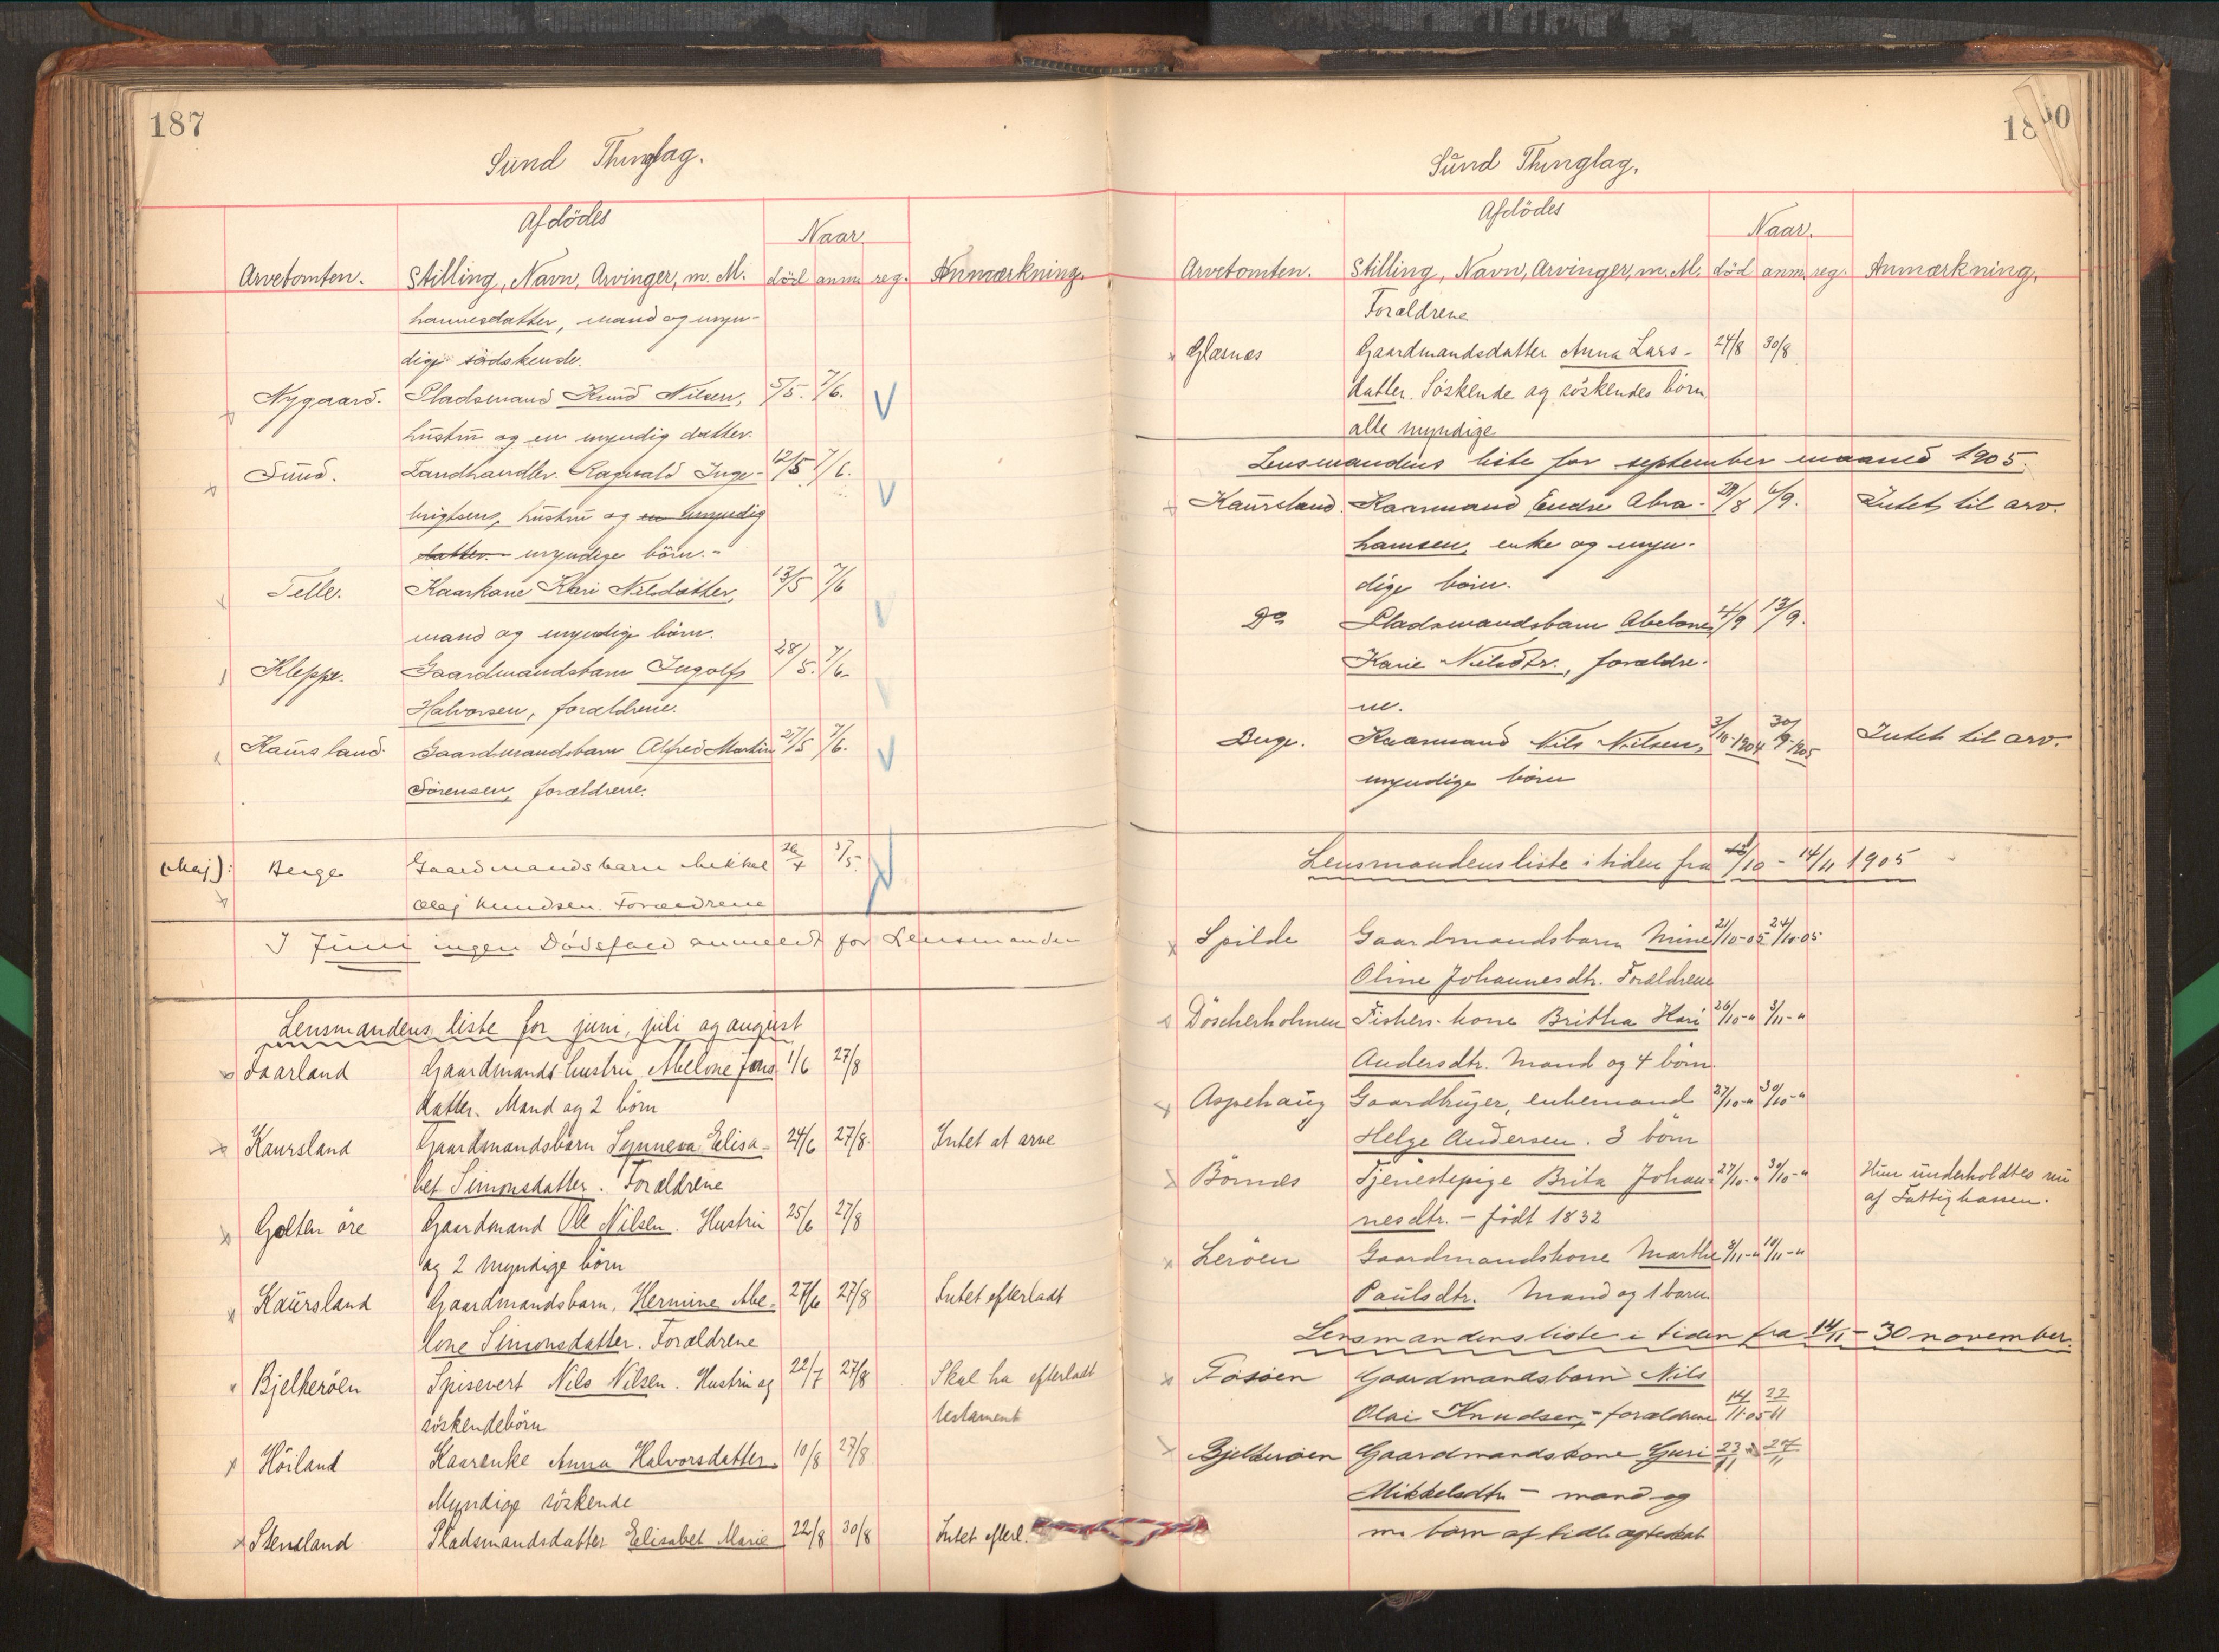 187
Sund Thinglag.
Afdödes
Naar.
Arvetomten. Stilling, Navn, Arvinger, m. M. död anm. reg. Anmærkning.
hannesdatter, mand og myn-
dige södskende.
Nygaard. Pladsmand Knud Nilsen, 5/5. 7/6.
hustru og en myndig datter.
Sund. Landhandler Ragnvald Inge- 12/5 7/6.
brigtsen, hustru og en umyndig
datter. myndige börn. -
Telle. Kaarkone Kari Nilsdatter, 13/5 7/6
mand og myndige börn.
Kleppe. Gaardmandsbarn Ingolf 28/5. 7/6.
Halvorsen, forældrene.
Kaursland. Gaardmandsbarn Alfred Martin 27/5 7/6.
Sörensen, forældrene.
(Maj): Berge Gaardmandsbarn Mikkel 26/4 5/5.
Olaj Knudsen. Forældrene
I Juni ingen Dödsfald anmeldt for Lensmanden
Lensmandens liste for juni, juli og august
Faarland Gaardmands hustru Abelone Jons 1/6 27/8
datter. Mand og 2 börn
Kaursland Gaardmandsbarn Synneva Elisa- 24/6 27/8. Intet at arve
bet Simonsdatter. Forældrene
Golten öre Gaardmand Ole Nilsen. Hustru 25/6 27/8
og 2 myndige börn
Kaursland Gaardmandsbarn, Hermine Abe- 27/6 27/8 Intet efterladt
lone Simonsdatter. Forældrene
Bjelkeröen Spisevert Nils Nilsen. Hustru og 22/7 27/8 Skal ha efterladt
söskendebörn testament
Höiland Kaarenke Anna Halvorsdatter. 10/8 27/8
Myndige söskende
Stensland Pladsmandsdatter Elisabet Marie 22/8 30/8 Intet efterl.
18
Sund Thinglag.
Afdödes
Naar.
Arvetomten. Stilling, Navn, Arvinger, m. M. död anm. reg. Anmærkning.
Forældrene
Glæsnes Gaardmandsdatter Anna Lars- 24/8 30/8
datter. Söskende og söskendes börn
alle myndige
Lensmandens liste for september maaned 1905.
Kaursland. Kaarmand Endre Abra- 29/8 6/9. Intet til arv.
hamsen, enke og myn-
dige börn.
Do Pladsmandsbarn Abelone 4/9 13/9.
Karie Nilsdtr., forældre-
ne.
Berge. Kaarmand Nils Nilsen, 3/10-1904 30/9-1905 Intet til arv.
myndige börn
Lensmandens liste i tiden fra /10 - 14/11 1905
Spilde Gaardmandsbarn Mine 21/10-05 24/10-05
Oline Johannesdtr. Forældrene
Döscherholmen Fiskers. kone Britha Kari 26/10-" 3/11-"
Andersdtr. Mand og 4 börn.
Aspehaug Gaardbruger, enkemand 27/10-" 30/10-"
Helge Andersen. 3 börn
Börnes Tjenestepige Brita Johan- 27/10-" 30/10-" Hun underholdtes nu
nesdtr. - født 1832 af Fattigkassen.
Leröen Gaardmandskone Marthe 8/11-" 10/11-"
Paulsdtr. Mand og 1 barn.
Lensmandens liste i tiden fra 14/11 - 30 november.
Toföen Gaardmandsbarn Nils
Olai Knudsen, - forældrene 14/11-05 22/11
Bjelkeröen Gaardmandskone Guri 23/11 27/11
Mikkelsdtr - mand og
börn af tidl. ægteskab